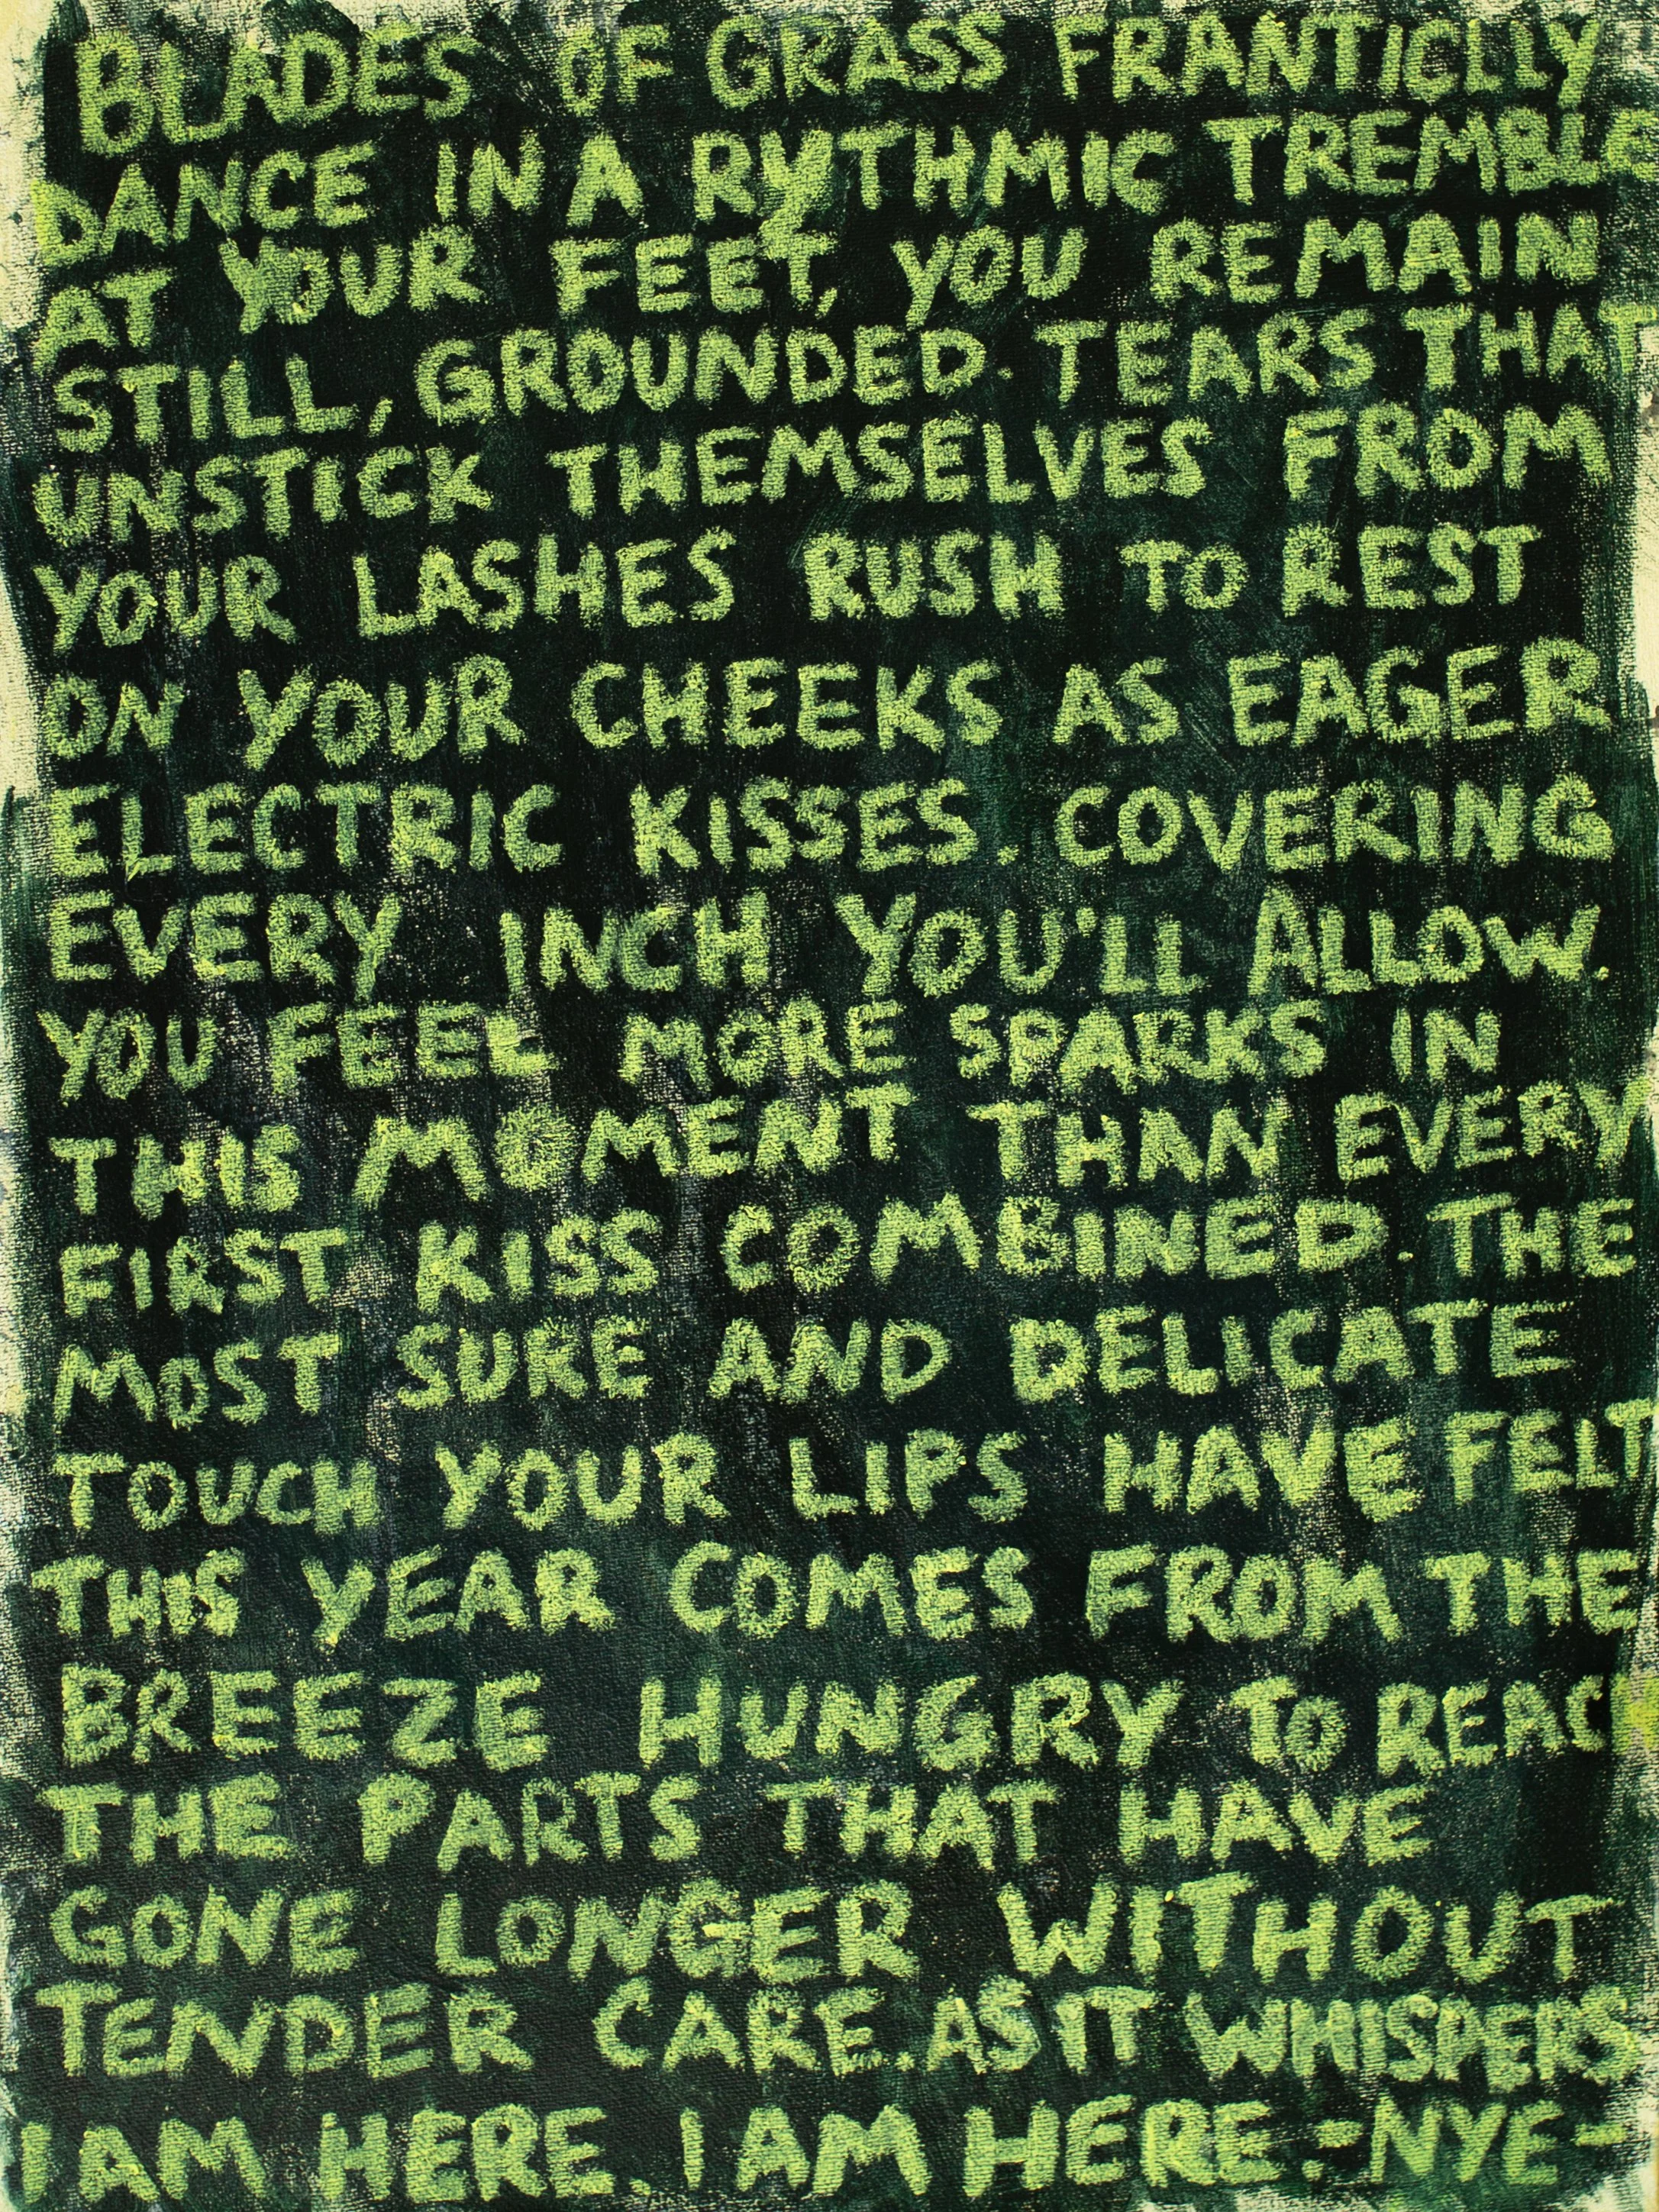 BLADES OF GRASS FRANTICLLY
DANCE IN A RYTHMIC TREMBLE
AT YOUR FEET, YOU REMAIN
STILL, GROUNDED. TEARS THAT
UNSTICK THEMSELVES FROM
YOUR LASHES RUSH TO REST
ON YOUR CHEEKS AS EAGER
ELECTRIC KISSES. COVERING
EVERY INCH YOU'LL ALLOW.
YOU FEEL MORE SPARKS IN
THIS MOMENT THAN EVERY
FIRST KISS COMBINED. THE
MOST SURE AND DELICATE
TOUCH YOUR LIPS HAVE FELT
THIS YEAR COMES FROM THE
BREEZE HUNGRY TO REAC
THE PARTS THAT HAVE
GONE LONGER WITHOUT
TENDER CARE. AS IT WHISPERS
I AM HERE. I AM HERE. -NYE-